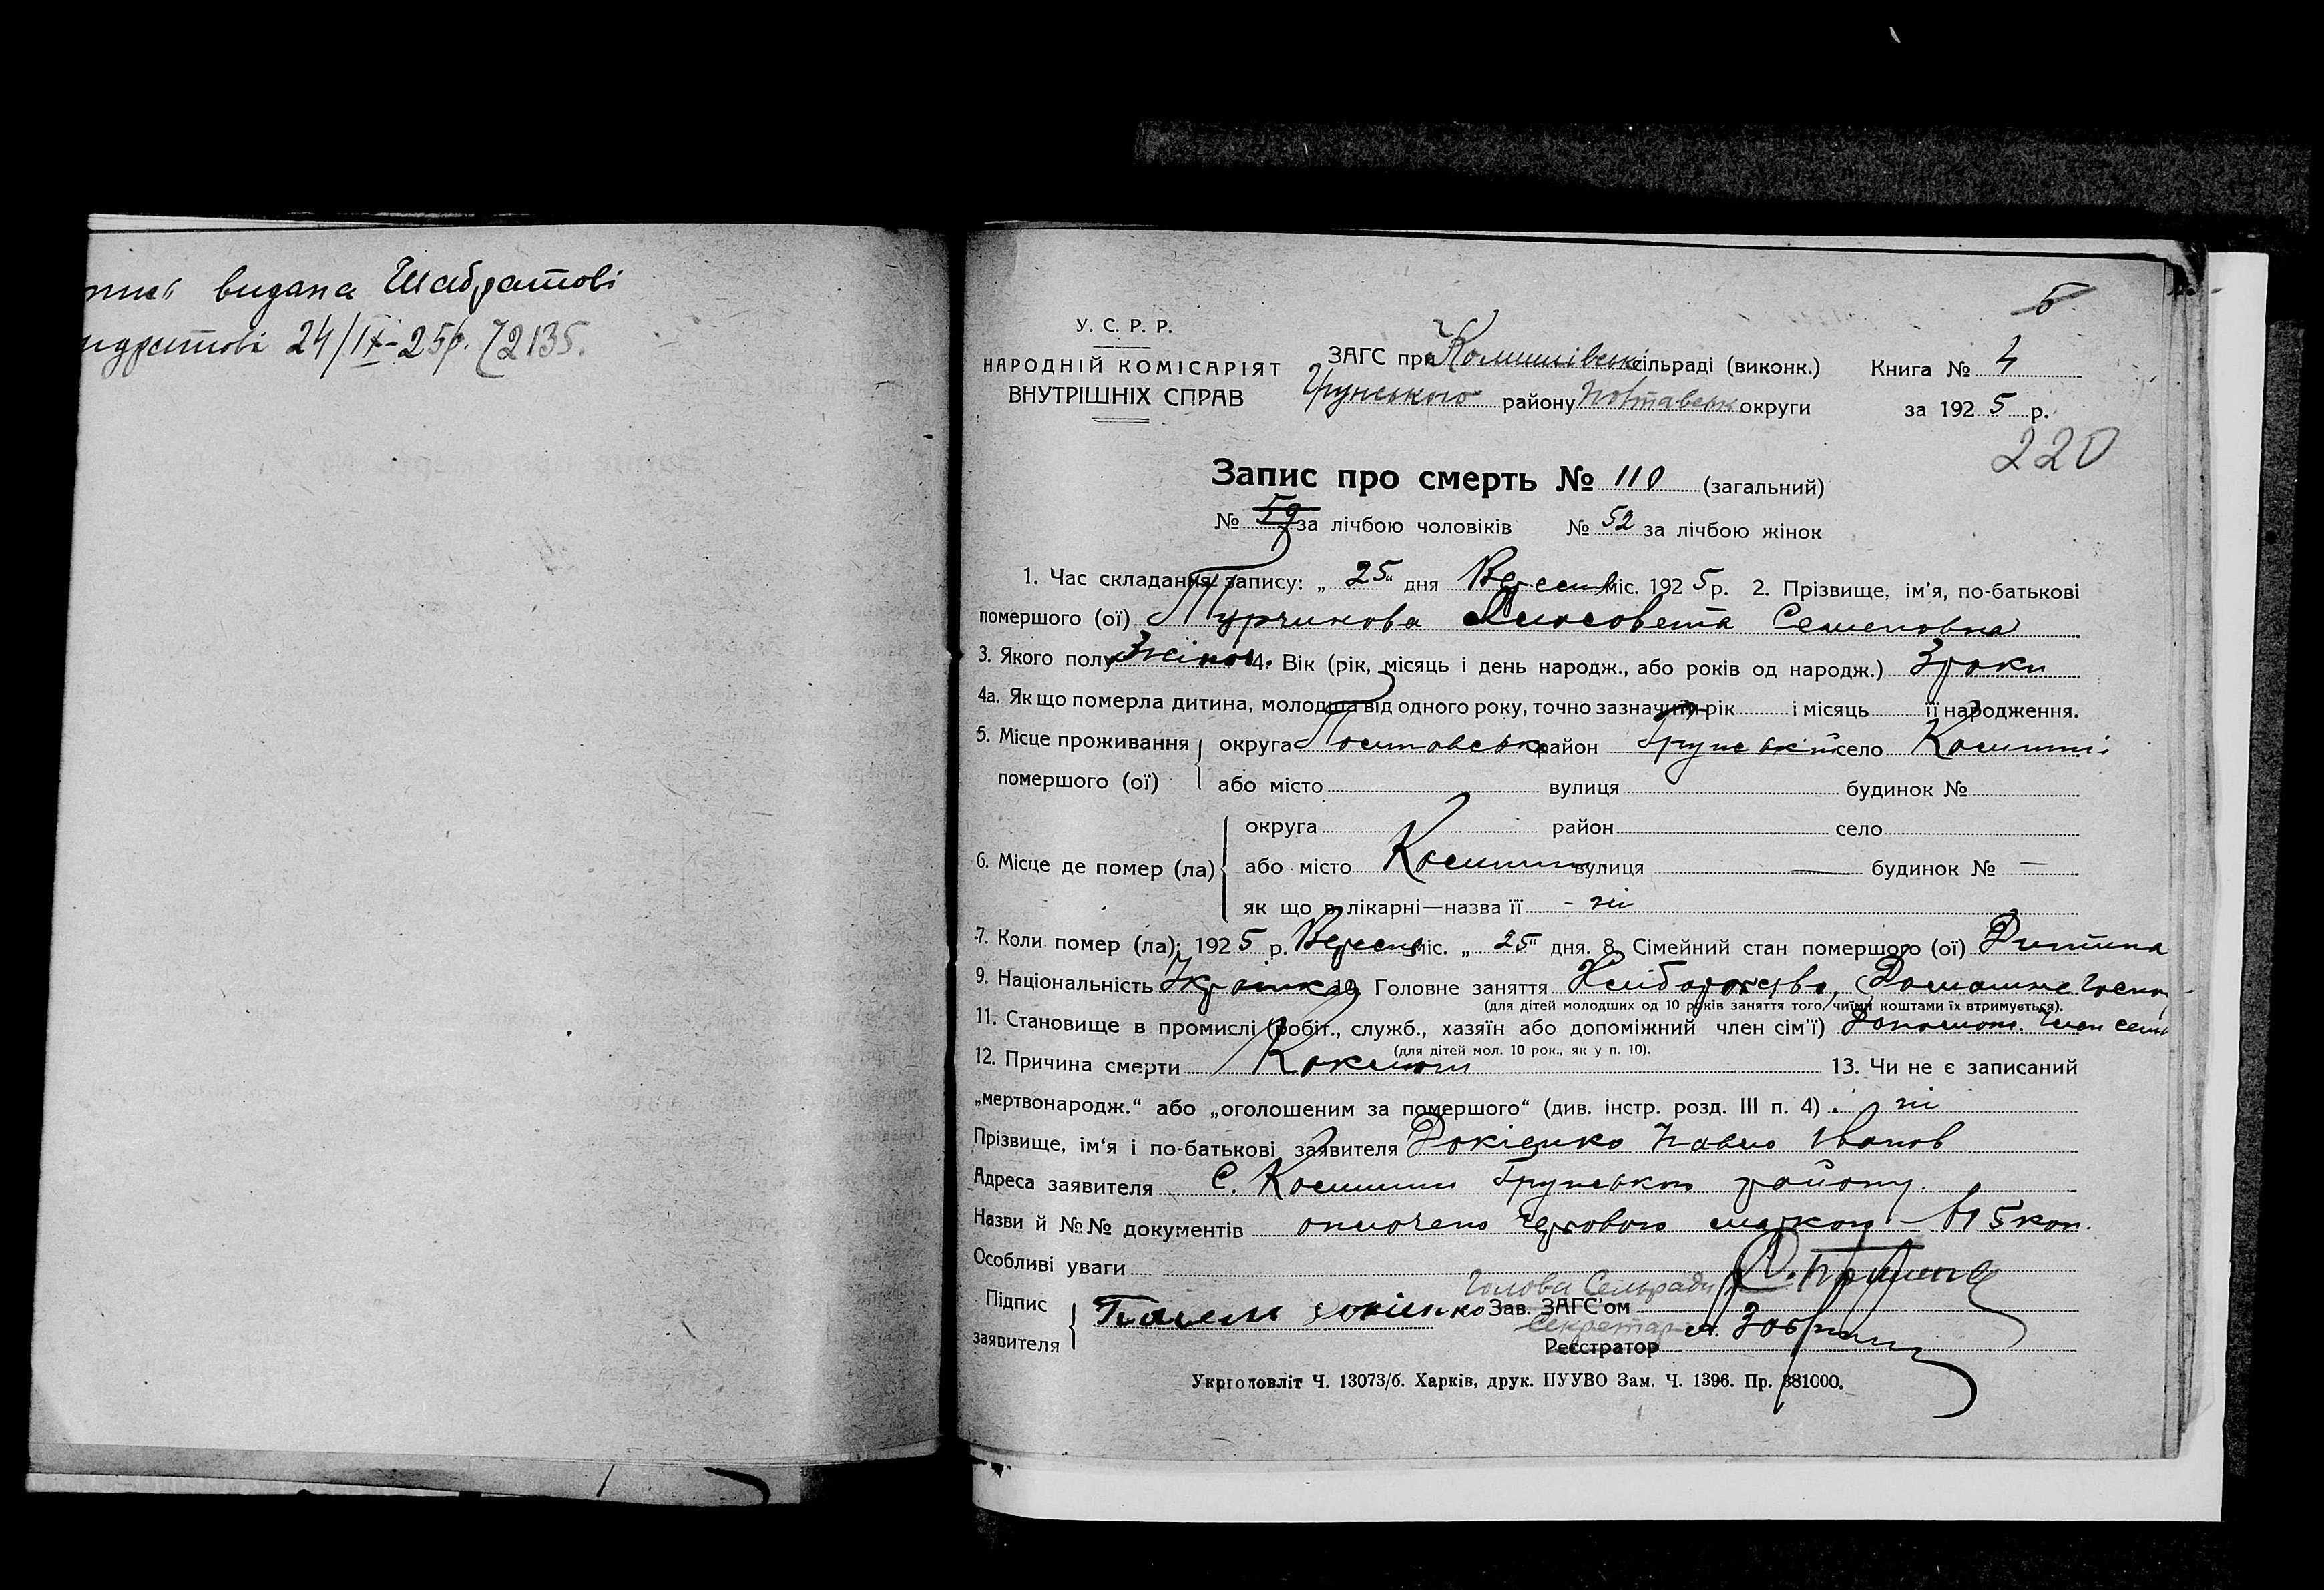 видана Шабратові
24/IX-25р. 72135.
5
У. С. Р. Р.
НАРОДНІЙ КОМІСАРІЯТ
ВНУТРІШНІХ СПРАВ
ЗАГС при сільраді (виконк.) Книга № 4
Грунського району Полтавськ округи за 1925 р.
220
Запис про смерть № 110 (загальний)
№ 59 за лічбою чоловіків № 52 за лічбою жінок
1. Час складання запису: „ 25 “ дня Вересня міс. 1925 р. 2. Прізвище, ім'я, по-батькові
помершого (ої) Турчинова Єлисовета Семеновна
3. Якого полу Жіноч. 4. Вік (рік, місяць і день народж., або років од народж.) 3 роки
4а. Як що померла дитина, молодша від одного року, точно зазначити рік і місяць її народження.
5. Місце проживання округа Полтавськ район Грунський село
помершого (ої) або місто вулиця будинок №
округа район село
6. Місце де помер (ла) або місто вулиця — будинок № —
як що в лікарні—назва її - ні
7. Коли помер (ла): 1925 р. Вересня міс. „ 25 “ дня. 8. Сімейний стан помершого (ої) Дитина
9. Національність Українка 10. Головне заняття Хліборобство, Домашнє
(для дітей молодших од 10 років заняття того, чиїми коштами їх втримується).
11. Становище в промислі (робіт., служб., хазяїн або допоміжний член сім'ї) Допоміж. член сем
(для дітей мол. 10 рок., як у п. 10).
12. Причина смерти Коклюш 13. Чи не є записаний
„мертвонародж.“ або „оголошеним за помершого“ (див. інстр. розд. III п. 4) . ні
Прізвище, ім'я і по-батькові заявителя Докієнко Павло Іванов
Адреса заявителя С. Грунського району.
Назви й №№ документів оплочено гербовою маркою 15 коп.
Особливі уваги
Голова Сельради
Підпис Докієнко Зав. ЗАГС'ом
Секретар
заявителя Реєстратор
Укрголовліт Ч. 13073/б. Харків, друк. ПУУВО Зам. Ч. 1396. Пр. 381000.